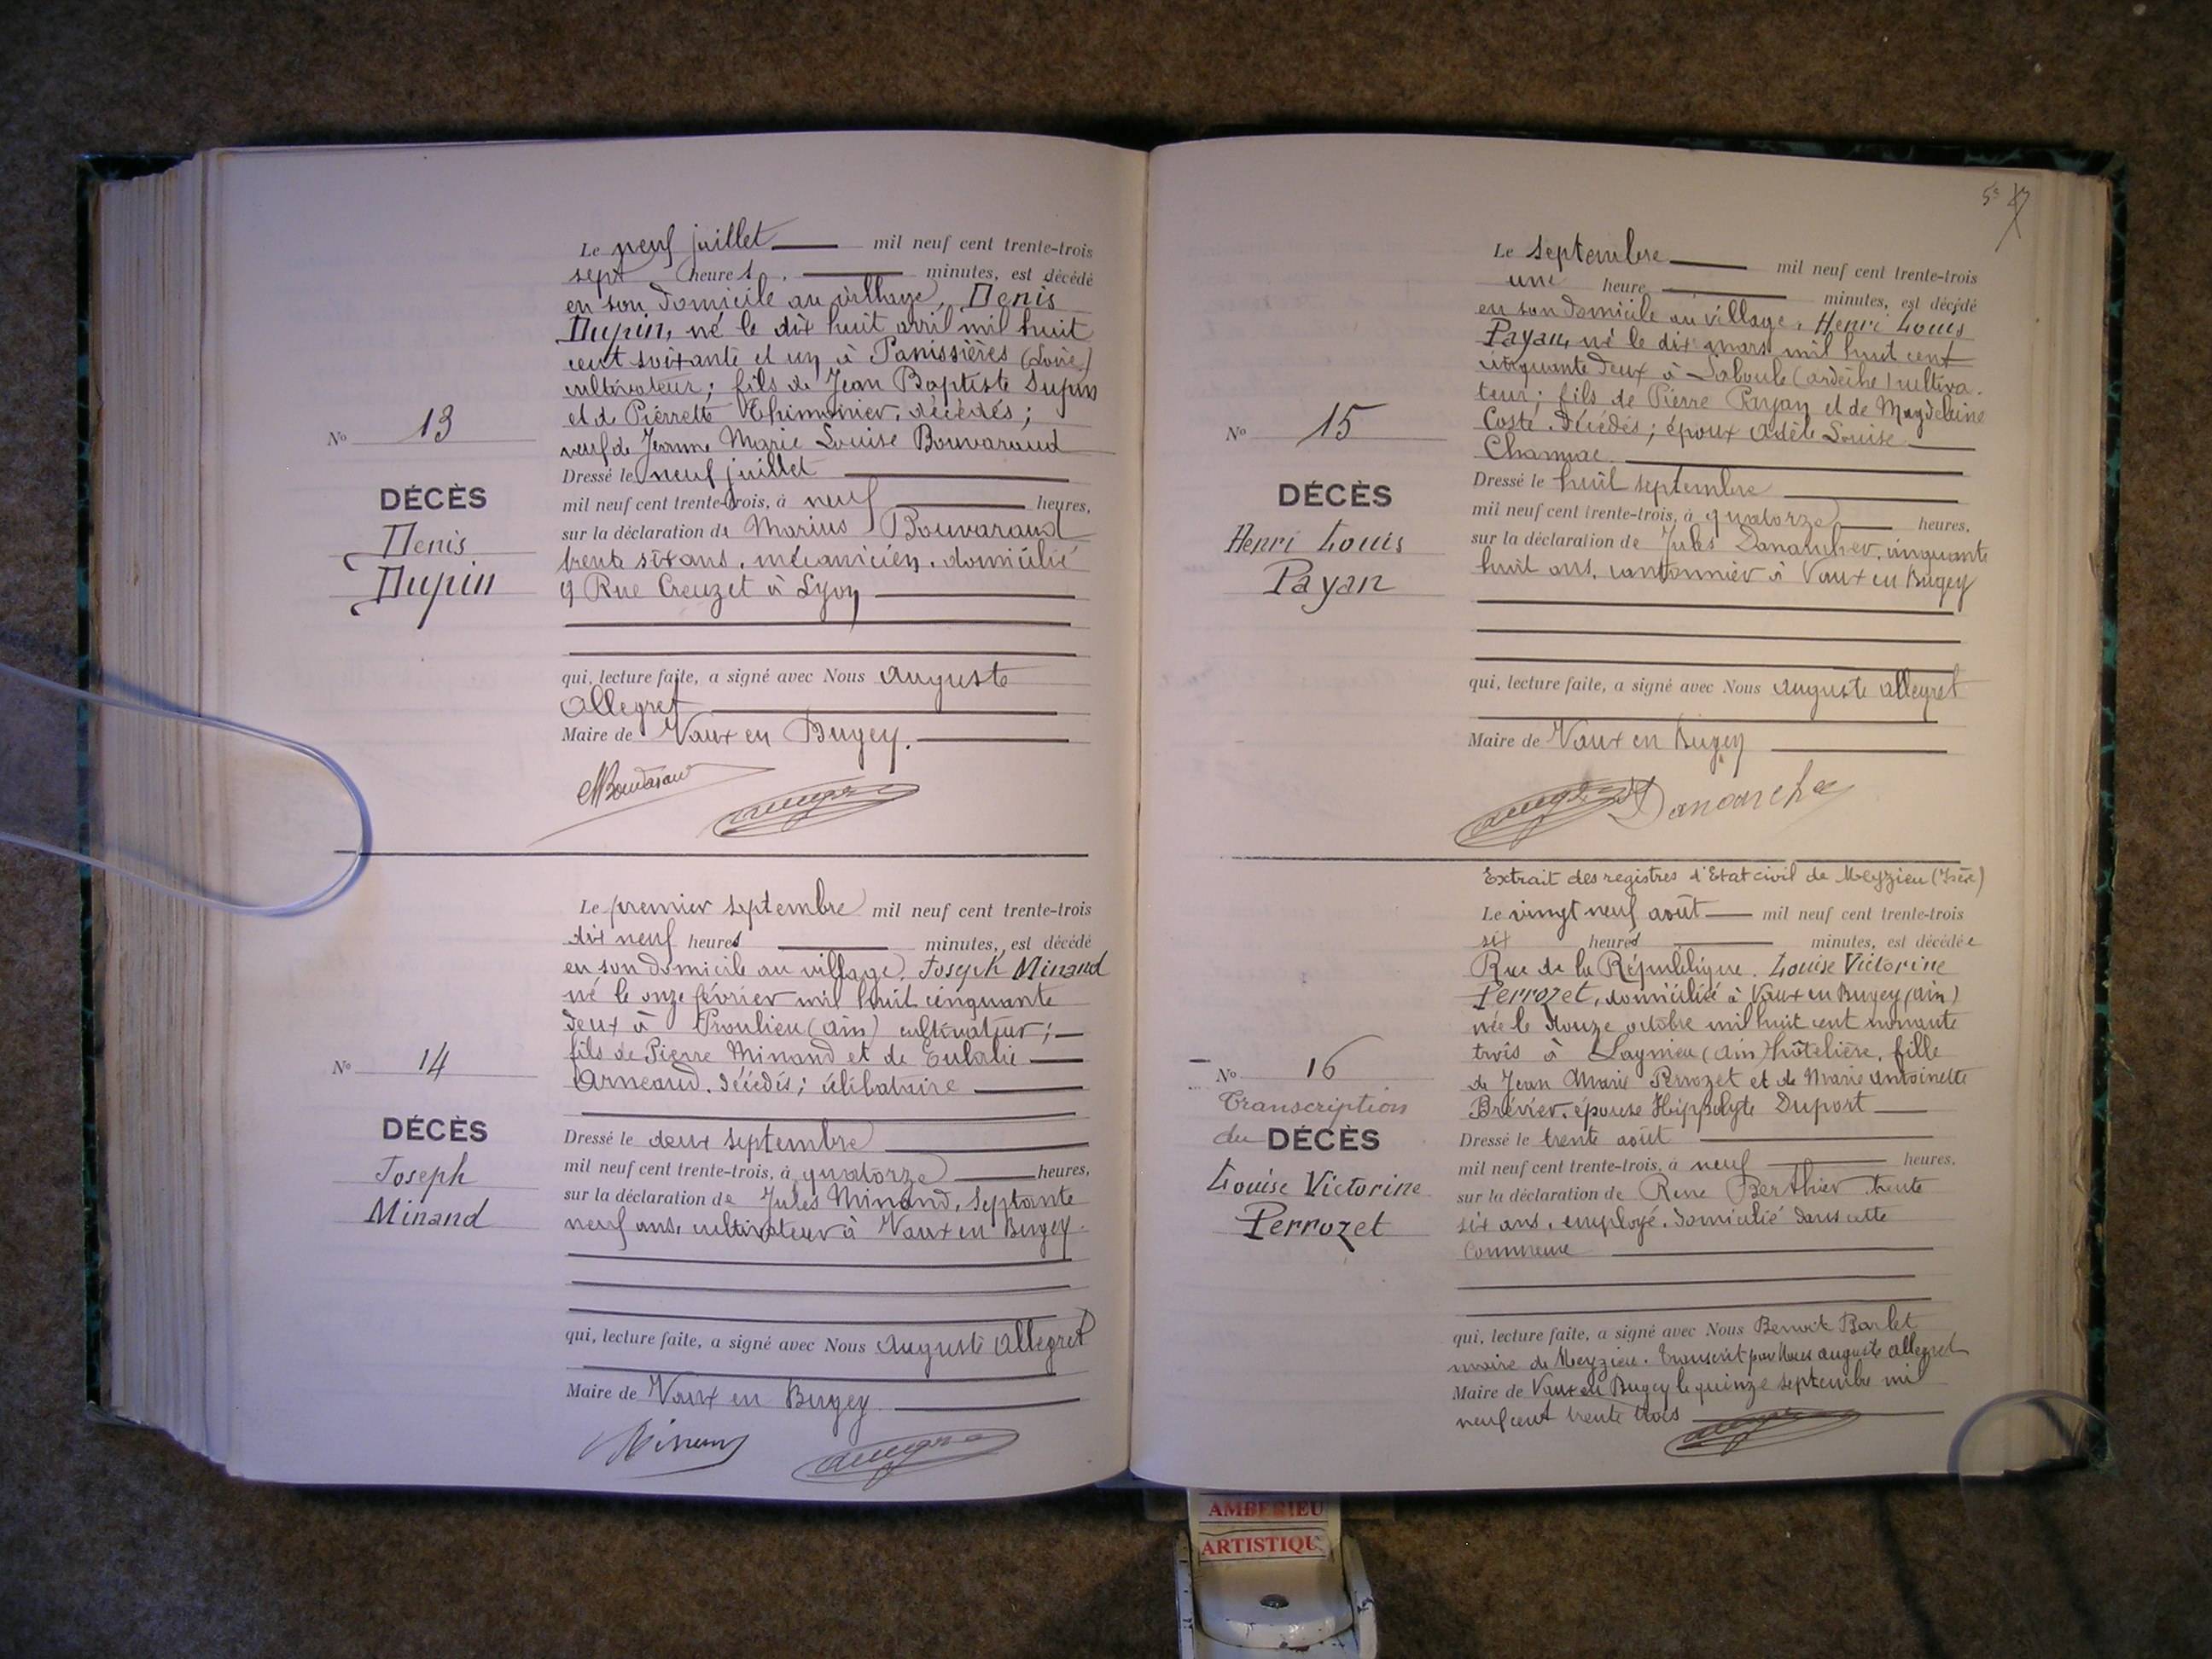 Le neuf juillet mil neuf cent trente-trois
sept heures, minutes, est décédé
en son domicile au village, Denis
Dupin, né le dix huit avril mil huit
cent soixante et un à Panissières (Loire)
cultivateur; fils de Jean Baptiste Dupin
et de Pierrette Thimonier, décédés;
veuf de Jeanne Marie Louise Bouvaraud
No 13
DÉCÈS
Denis
Dupin
Dressé le neuf juillet
mil neuf cent trente-trois, à neuf heures,
sur la déclaration de Marius Bouvaraud
trente six ans, mécanicien, domicilié
9 Rue Creuzet à Lyon
qui, lecture faite, a signé avec Nous Auguste
Allegret
Maire de Vaux en Bugey.
Le premier septembre mil neuf cent trente-trois
dix neuf heures minutes, est décédé
en son domicile au village, Joseph Minand
né le onze février mil huit cinquante
deux à Proulieu (Ain) cultivateur;
fils de Pierre Minand et de Eulalie
Arneaud, décédés; célibataire
No 14
DÉCÈS
Joseph
Minand
Dressé le deux septembre
mil neuf cent trente-trois, à quatorze heures,
sur la déclaration de Jules Minand, septante
neuf ans, cultivateur à Vaux en Bugey.
qui, lecture faite, a signé avec Nous Auguste Allegret
Maire de Vaux en Bugey
Le septembre mil neuf cent trente-trois
une heure minutes, est décédé
en son domicile au village, Henri Louis
Payan, né le dix mars mil huit cent
cinquante deux à Laboule (Ardèche) cultiva-
teur; fils de Pierre Payan et de Magdeleine
Coste, décédés; époux Adèle Louise
No 15
DÉCÈS
Henri Louis
Payan
Dressé le huit septembre
mil neuf cent trente-trois, à quatorze heures,
sur la déclaration de Jules Danancher, cinquante
huit ans, cantonnier à Vaux en Bugey
qui, lecture faite, a signé avec Nous Auguste Allegret
Maire de Vaux en Bugey
Extrait des registres d'Etat civil de Meyzieu (Isère)
Le vingt neuf août mil neuf cent trente-trois
six heures minutes, est décédée
Rue de la République, Louise Victorine
Perrozet, domiciliée à Vaux en Bugey (Ain)
née le douze octobre mil huit cent nonante
trois à Lagnieu (Ain) hôtelière, fille
de Jean Marie Perrozet et de Marie Antoinette
Brévier, épouse Hippolyte Duport
No 16
Transcription
du DÉCÈS
Louise Victorine
Perrozet
Dressé le trente août
mil neuf cent trente-trois, à neuf heures,
sur la déclaration de Rene Berthier trente
six ans, employé, domicilié dans cette
commune
qui, lecture faite, a signé avec Nous Benoit Barlet
maire de Meyzieu. Transcrit par Nous Auguste Allegret
Maire de Vaux en Bugey le quinze septembre mil
neuf cent trente trois
AMBERIEU
ARTISTIQU